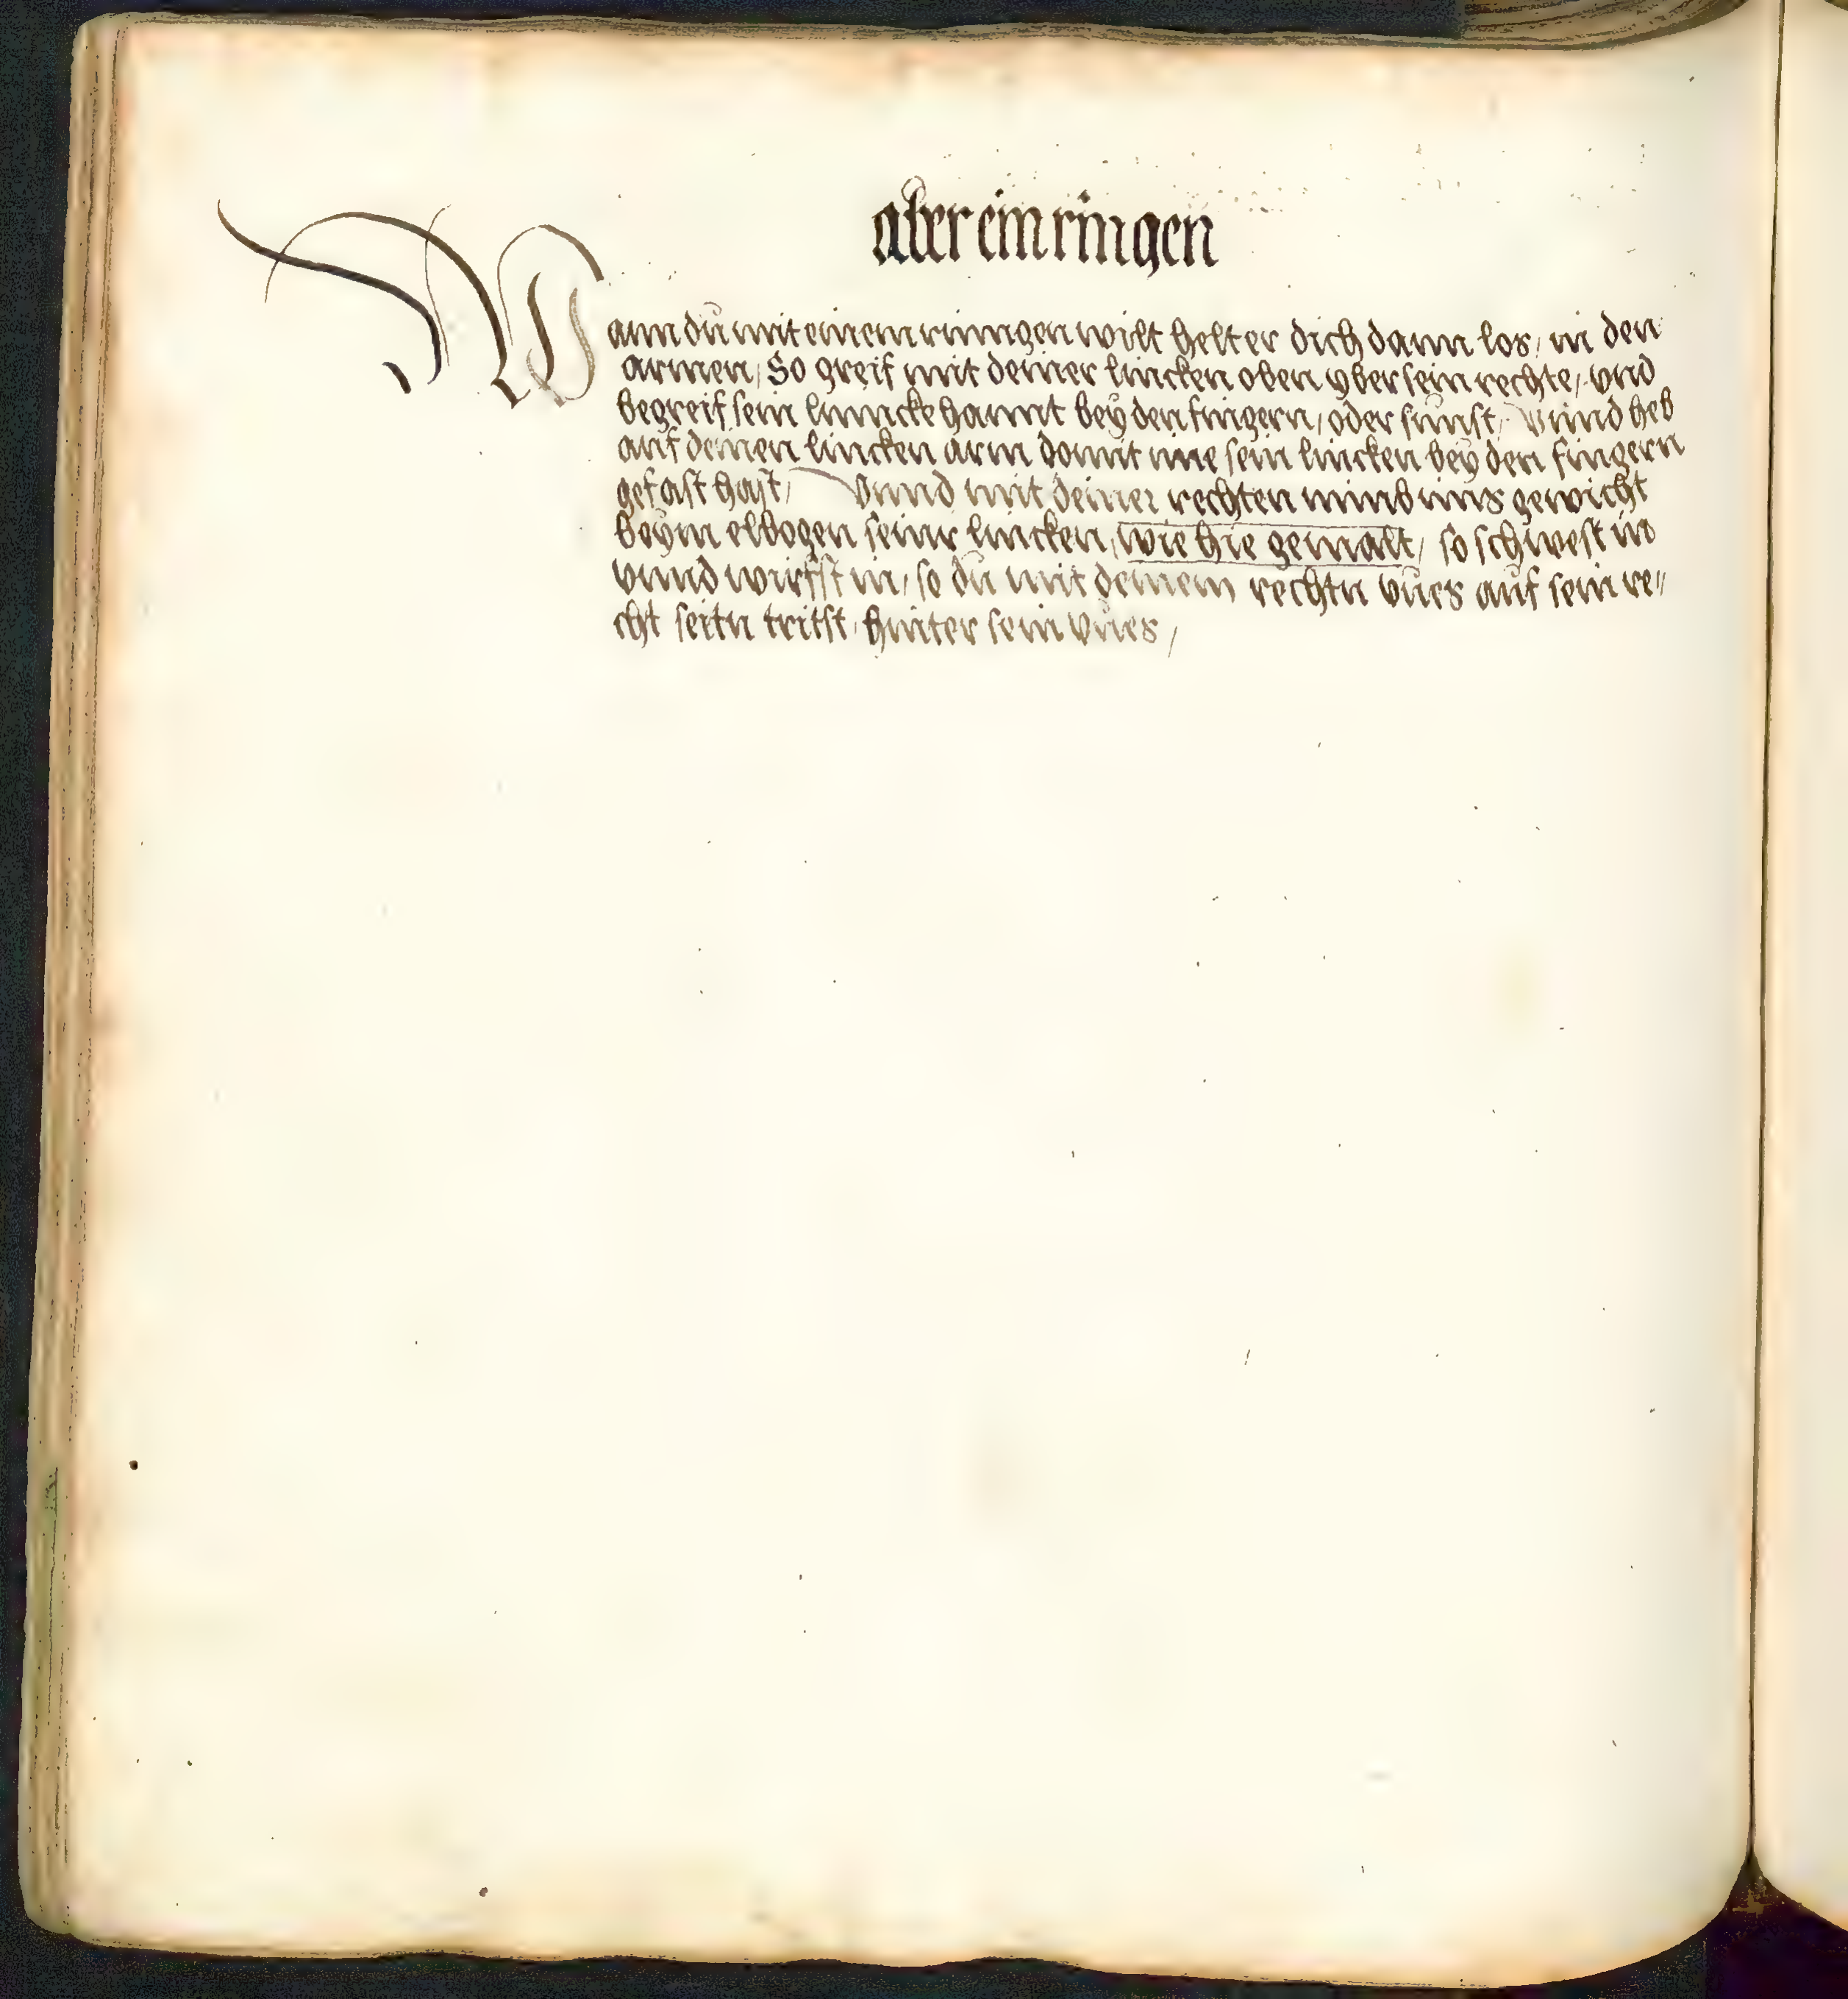 aber ein ringen
Wann dů mit einem rinngen wilt helt er dich dann los, in den
armen, So greif mit deiner lincken oben vber sein rechte, vnd
begreif sein linncke hannt bey den fingern, oder sůnst, Vnnd heb
auf deinen lincken arm domit ime sein lincken bey den fingern
gefast hast, Vnnd mit deiner rechten nimb ims gewicht
beym elbogen seinr lincken, wie hie gemalt, so schwest in
vnnd wirfst in, so dů mit deinem rechtn vůes auf sein re〃
cht seitn tritst, hinter sein vůes,